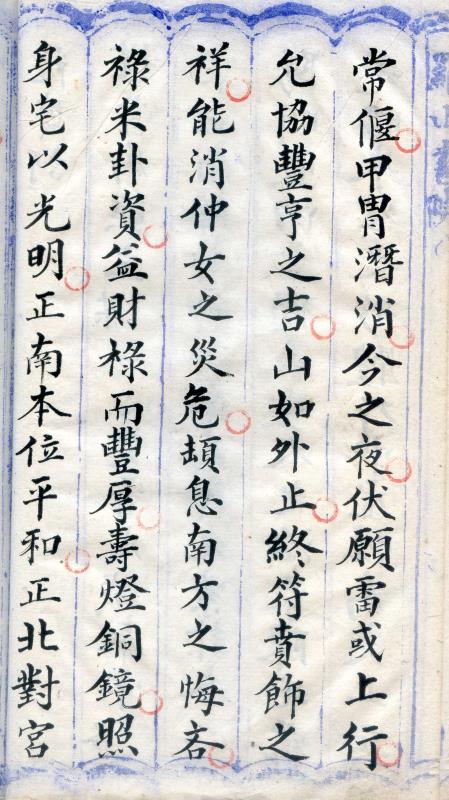 常偃甲冑潛消今之夜伏願雷或上行
允協豐亨之吉山如外止終符賁飾之
祥能消仲女之災危頡息南方之悔吝
祿米卦資益財椂而豐厚壽燈銅鏡照
身宅以光明正南本位平和正北對宮